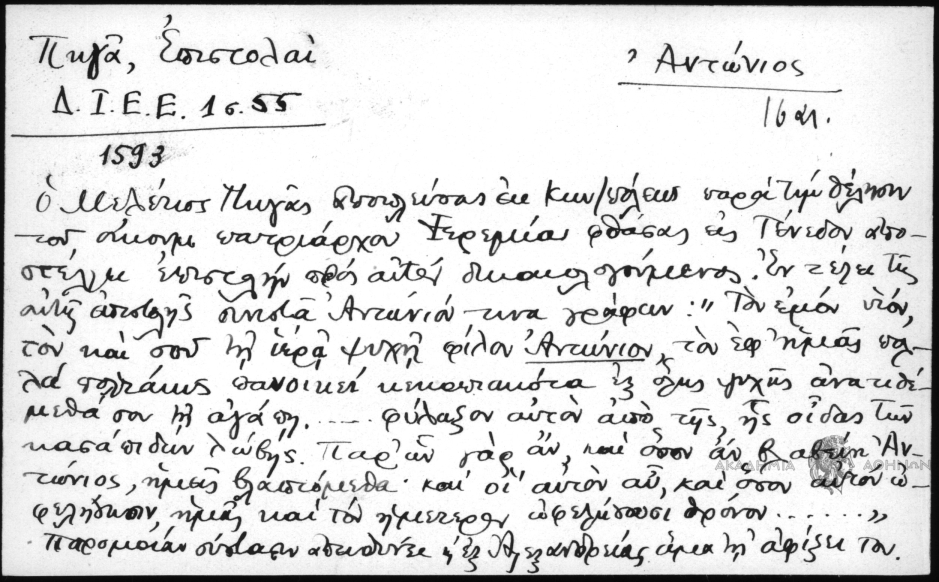 Πηγᾶ, Ἐπιστολαὶ
Δ.Ι.Ε.Ε. 1 σ. 55
1593
Ἀντώνιος
16 αι.
ὁ Μελέτιος Πηγᾶς ἐκ Κων/πόλεως παρὰ τὴν θέλησιν
τοῦ οἰκουμ. πατριάρχου Ἱερεμίου φθάσας εἰς Τένεδον ἀπο-
στέλλει ἐπιστολὴν πρὸς αὐτὸν δικαιολογούμενος. Ἐν τέλει τῆς
αὐτῆς ἐπιστολῆς συνιστᾶ Ἀντώνιόν τινα γράφων: "Τὸν ἐμὸν υἱόν,
τὸν καὶ σοῦ τῇ ἱερᾷ ψυχῇ φίλον Ἀντώνιον, τὸν ἐφ' ἡμᾶς πολ-
λὰ πολλάκις πανοικεὶ κεκοπιακότα ἐξ ὅλης ψυχῆς ἀνατιθέ-
μεθά σου τῇ ἀγάπῃ. ..... φύλαξον αὐτὸν ἀπὸ τῆς, ἧς οἶδας τῶν
λώβης. Παρ' ὧν γὰρ ἄν, καὶ ὅπου ἂν βλαβείη Ἀν-
τώνιος, ἡμεῖς βλαπτόμεθα· καὶ οἱ αὐτὸν αὖ, καὶ ὅπου αὐτὸν ὠ-
φελήσωσιν, ἡμᾶς καὶ τὸν ἡμέτερον ὠφελήσουσι θρόνον ......."
Παρομοίαν σύστασιν ἀπευθύνει ἐξ Ἀλεξανδρείας ἅμα τῇ ἀφίξει του.
ΑΚΑΔΗΜΙΑ ΑΘΗΝΩΝ